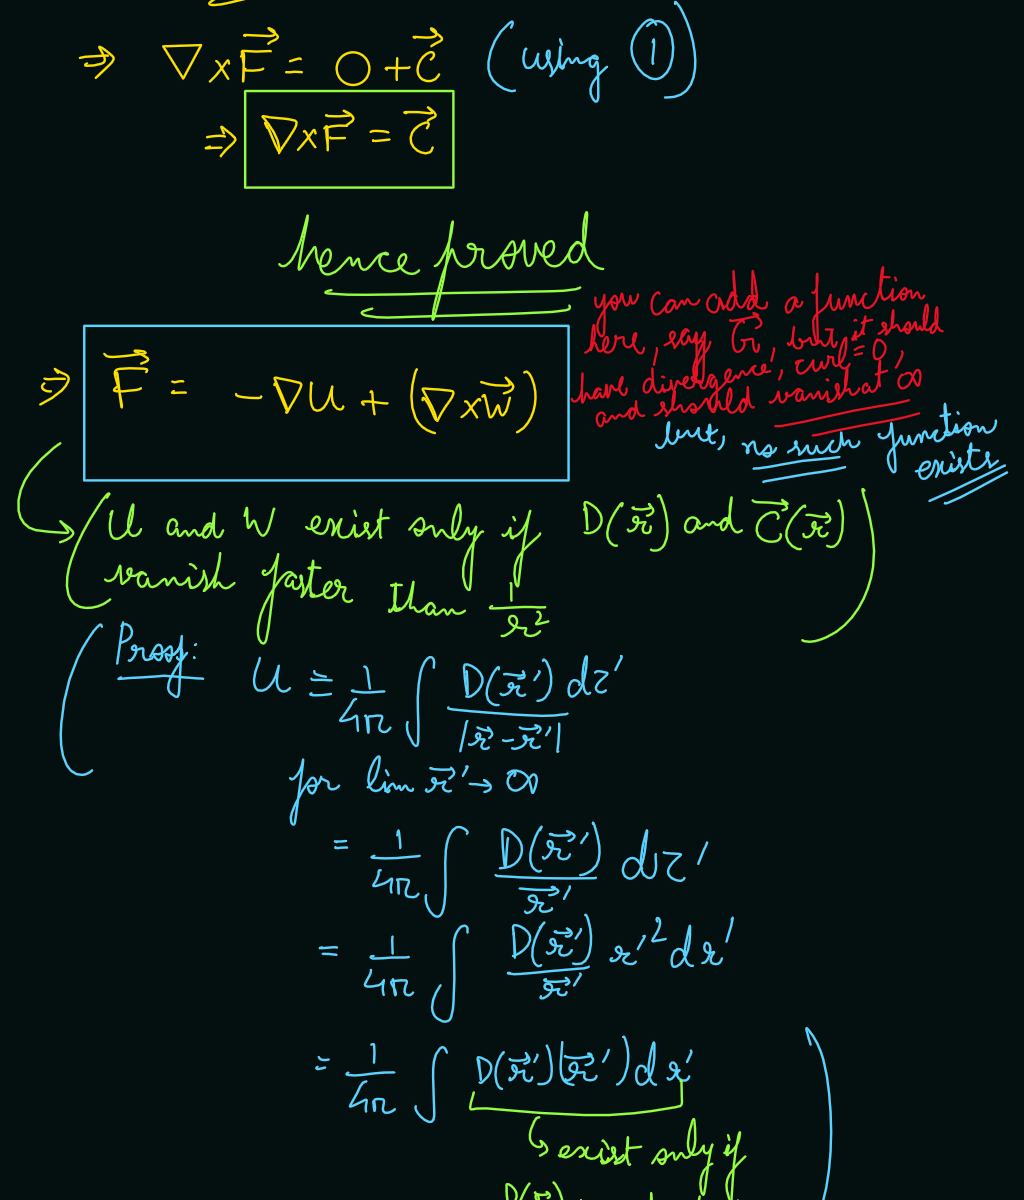 ⇒ ∇×F⃗ = 0 + C⃗ (using ①)
⇒ ∇×F⃗ = C⃗
hence proved
you can add a function
here, say G⃗, but it should
have divergence, curl = 0,
and should vanish at ∞
but, no such function
exists
⇒ F⃗ = -∇U + (∇×W⃗)
(U and W exist only if D(r⃗) and C⃗(r⃗)
vanish faster than 1/r²)
(Proof: U ≡ 1/4π ∫ D(r⃗') dτ' / |r⃗ - r⃗'|
for lim r⃗' → ∞
= 1/4π ∫ D(r⃗')/r⃗' dτ'
= 1/4π ∫ D(r⃗')/r⃗' r'² dr'
= 1/4π ∫ D(r⃗')(r⃗') dr'
↳ exist only if